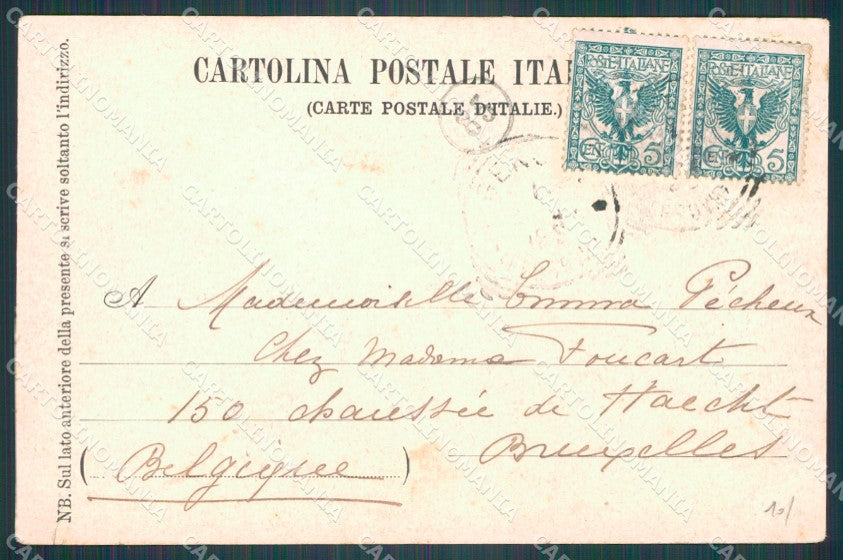 CARTOLINA POSTALE ITA
(CARTE POSTALE D'ITALIE.)
POSTE ITALIANE
CENT. 5
POSTE ITALIANE
CENT. 5
A Mademoiselle Emma Pécheux
Chez Madame Foucart
150 chaussée de Haecht
Bruxelles
(Belgique)
NB. Sul lato anteriore della presente si scrive soltanto l'indirizzo.
10/
CARTOLINOMANIA